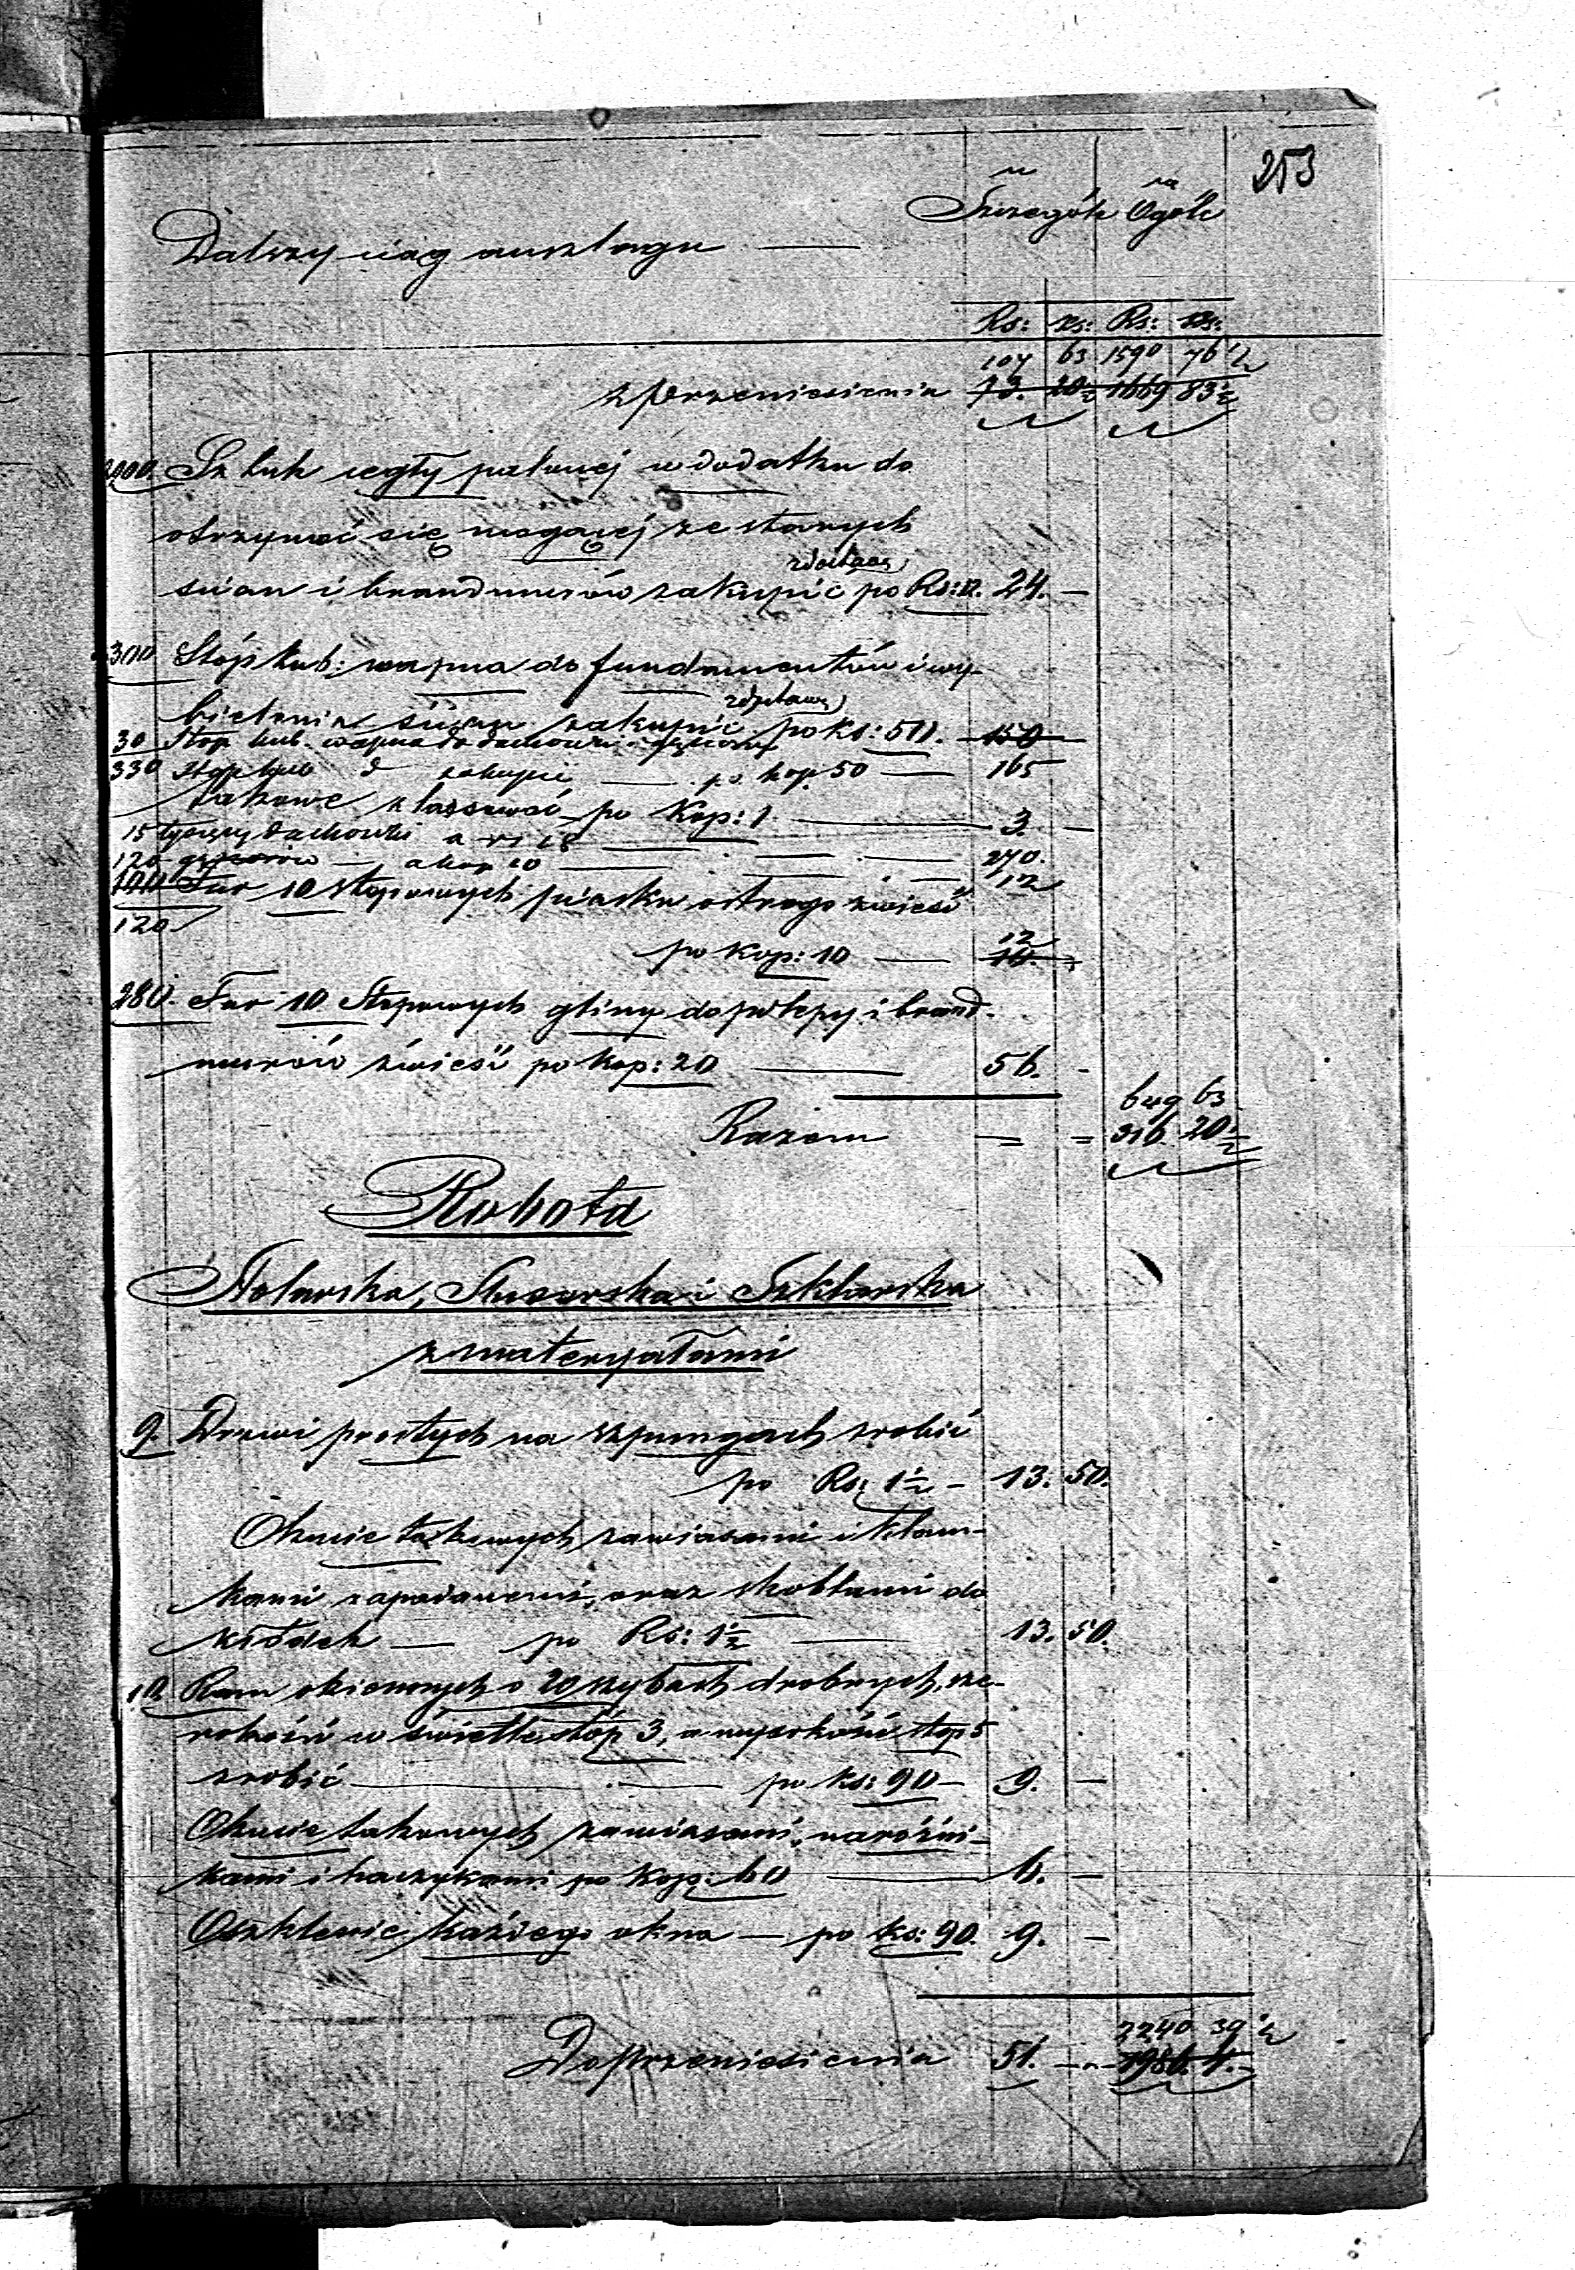 253
w na
Szczególe Ogóle
Dalszy ciąg anszlagu —
Rs: ks: Rs: ks:
107 63 1590 76 1/2
z przeniesienia 73. 20 1/2 1669 83 1/2
2000. Sztuk cegły palonej w dodatku do
otrzymać się mogącej ze starych
zdostawą
ścian i brandmurów zakupić po Rs: 12. 24. —
300 Stóp kub: wapna do fundamentów i wy-
zdostawą
bielenia ścian zakupić po ks: 50. — 150 —
30 Stop kub. wapna do dachówki i gąsiorów
330 Stop kub d zakupić — po kop 50 — 165
takowe zlassować po Kop: 1 — 3. —
15 tysięcy dachówki a rs 18 — 270.
120 gąsiorów — a kop 10 — 12
100 Fur 10 stopowych piasku ostrego zwieść
120
12
po kop: 10 — 10. —
280. Fur 10 Stopowych gliny do polepy i brand-
murów zwieść po kop: 20 — 56. -
649 63
Razem — = 316. 20 1/2
Robota
Stolarska, Slusarska i Szklarska
z materyałami
9. Drzwi prostych na szpungach zrobić
po Rs: 1 1/2 - 13. 50.
Okucie takowych zawiasami i klam-
kami zapadawemi, oraz skoblami do
kłódek — po Rs: 1 1/2 — 13. 50.
10 Ram okiennych o 20 szybach drobnych, sze-
rokość w świetle stóp 3, a wysokość stop 5
zrobić — po ks: 90 — 9. —
Okucie takowych zawiasami, narożni-
kami i haczykami po Kop: 60 — 6. —
Oszklenie każdego okna — po ks: 90. 9. —
2240 39 1/2
Do przeniesienia 51. — 1986. 4.